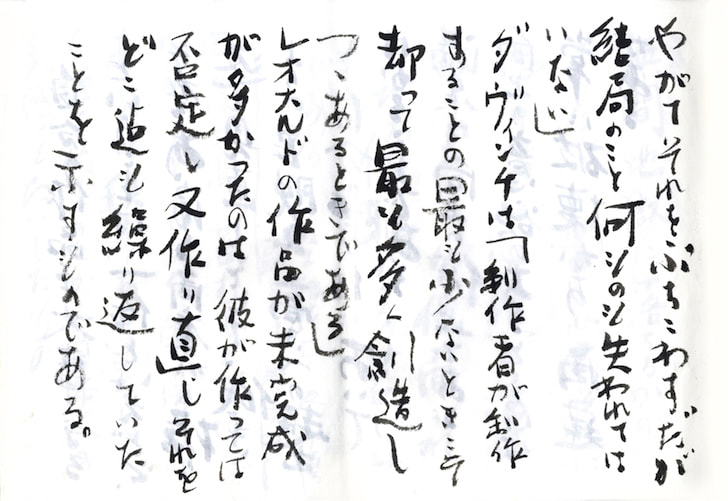 やがてそれをぶちこわす。だが
結局のこと何ものも失われては
いない」
ダヴィンチは「製作者が製作
することの最も少ないときこそ
却って最も多く創造し
つゝあるときである」
レオナルドの作品が未完成
が多かったのは彼が作っては
否定し又作り直しそれを
どこ迄も繰り返していた
ことを示すものである。